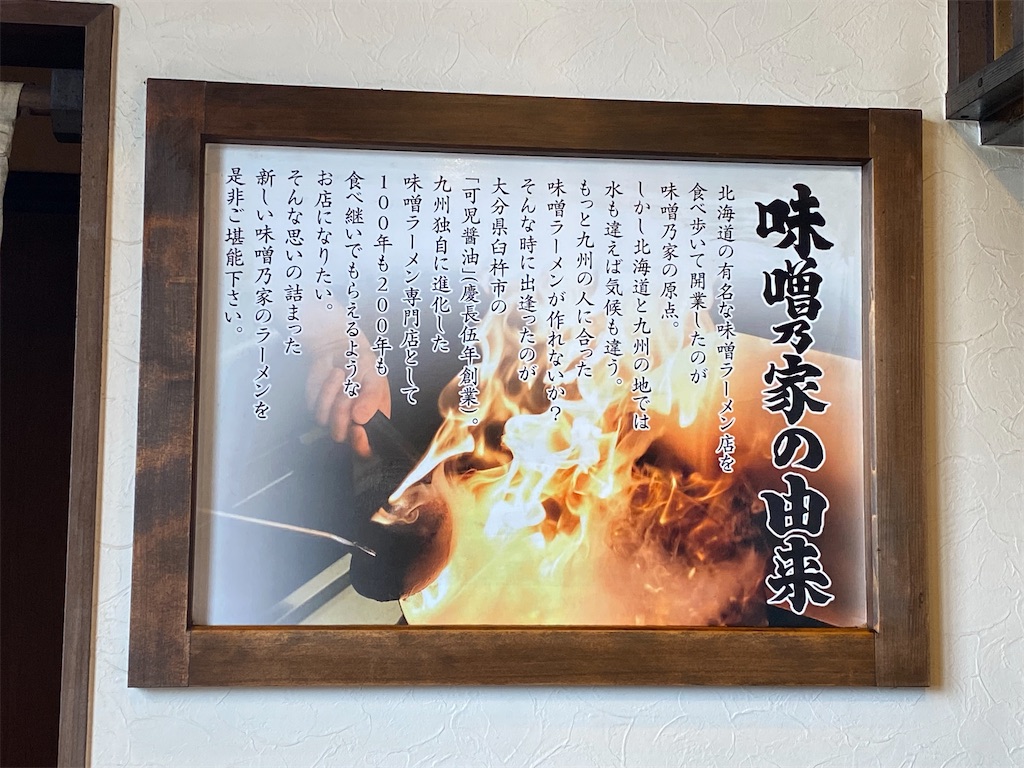 味噌乃家の由来
北海道の有名な味噌ラーメン店を
食べ歩いて開業したのが
味噌乃家の原点。
しかし北海道と九州の地では
水も違えば気候も違う。
もっと九州の人に合った
味噌ラーメンが作れないか?
そんな時に出逢ったのが
大分県臼杵市の
「可児醤油」(慶長伍年創業)。
九州独自に進化した
味噌ラーメン専門店として
100年も200年も
食べ継いでもらえるような
お店になりたい。
そんな思いの詰まった
新しい味噌乃家のラーメンを
是非ご堪能下さい。